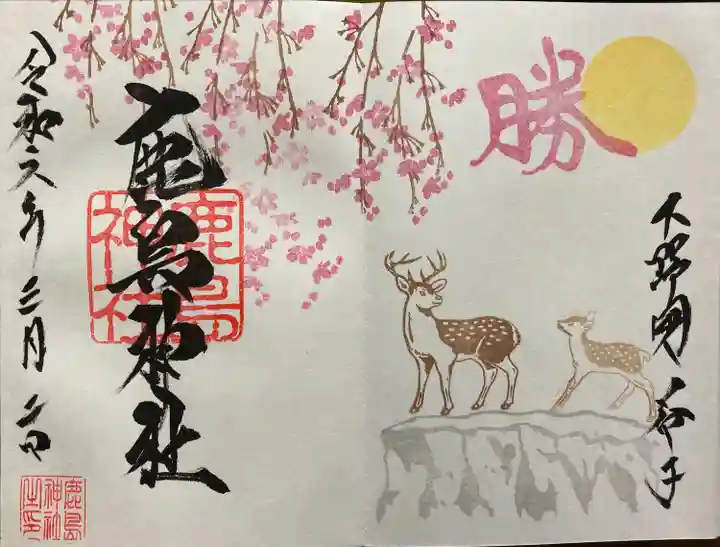 勝
下野國 益子
鹿島神社
鹿島
神社
令和六年三月
鹿島
神社
之印